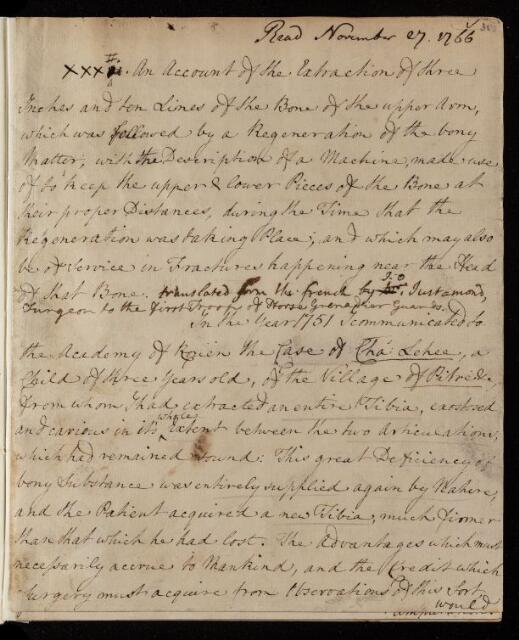 Read November 27. 1766
XXXII. An Account of the Extraction of three
Inches and ten Lines of the Bone of the upper Arm,
which was followed by a Regeneration of the bony
Matter; with the Description of a Machine, made use
of to keep the upper & lower Pieces of the Bone at
their proper Distances, during the Time that the
Regeneration was taking Place; and which may also
be of Service in Fractures happening near the Head
of that Bone. translated from the French by J. O. Justamond,
Surgeon to the First Troop of Horse Grenadier Guards.
In the Year 1751 I communicated to
the Academy of Roüen the Case of Cha: Lehec, a
Child of three Years old, of the Village of Pitred,
from whom I had extracted an entire Tibia, exostosed
and carious in its whole Extent between the two Articulations,
which had remained sound: This great Deficiency of
bony Substance was entirely supplied again by Nature,
and the Patient acquired a new Tibia, much firmer
than that which he had lost. The Advantages which must
necessarily accrue to Mankind, and the Credit which
Surgery must acquire from Observations of this Sort
would